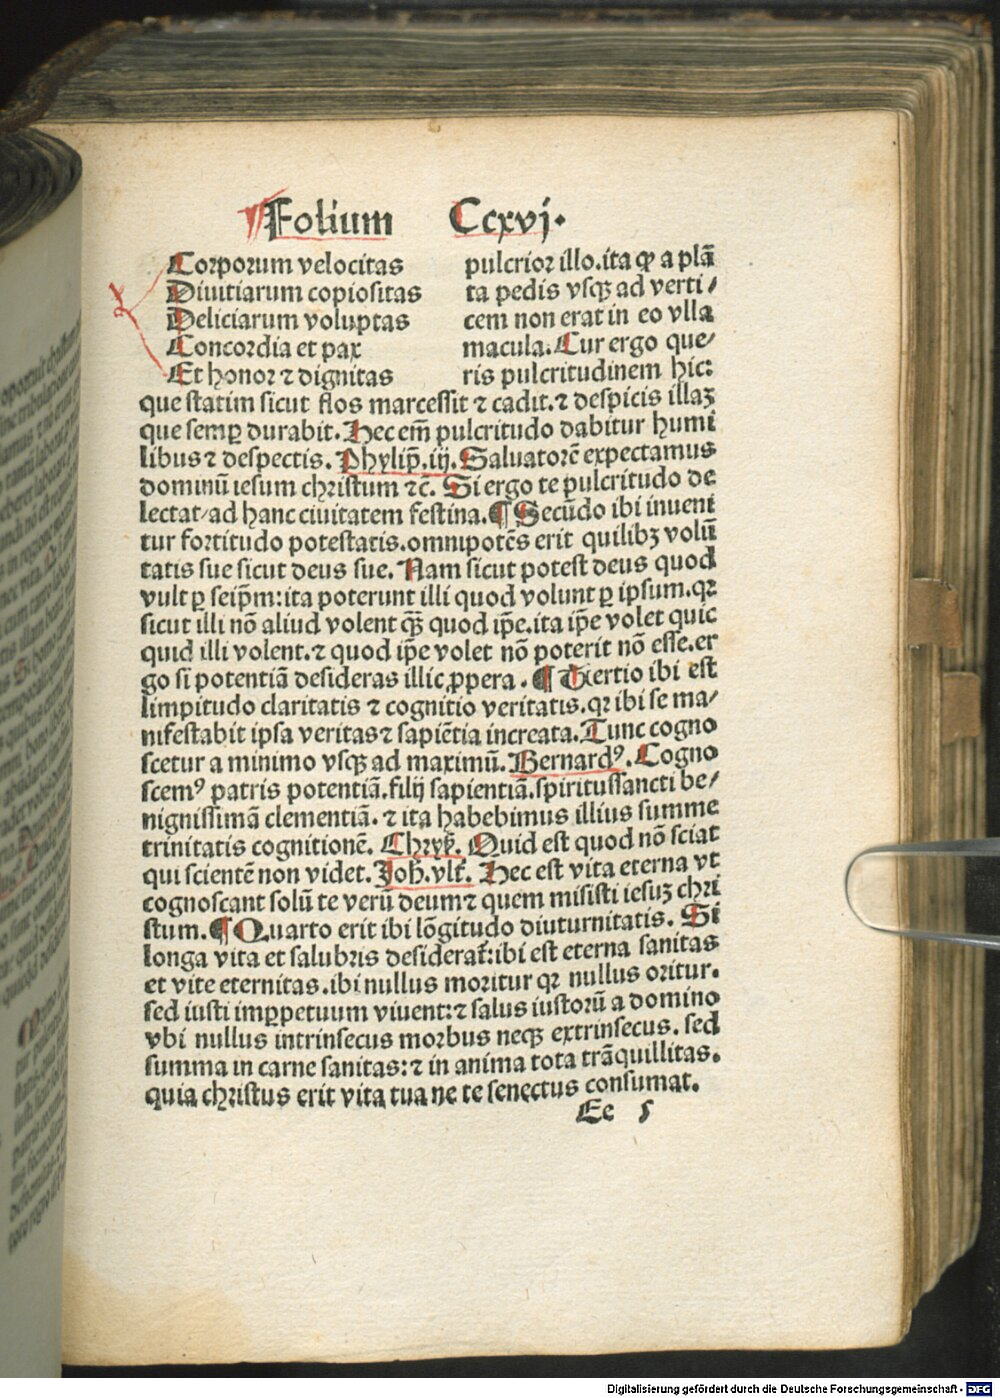 Folium Ccxvj.
Corporum velocitas
Diuitiarum copiositas
Deliciarum voluptas
Concordia et pax
Et honor ⁊ dignitas
pulcrior illo.ita ꝙ a plā
ta pedis vsqꝫ ad verti/
cem non erat in eo vlla
macula.Cur ergo que/
ris pulcritudinem hic:
que statim sicut flos marcessit ⁊ cadit.⁊ despicis illaꝫ
que semꝑ durabit.Hec em̄ pulcritudo dabitur humi
libus ⁊ despectis. Phylip̄.iij.Saluatorē expectamus
dominū iesum christum ⁊c̄. Si ergo te pulcritudo de
lectat/ad hanc ciuitatem festina.¶ Secūdo ibi inueni
tur fortitudo potestatis.omnipotēs erit quilibꝫ volū
tatis sue sicut deus sue. Nam sicut potest deus quod
vult ꝑ seip̄m:ita poterunt illi quod volunt ꝑ ipsum.qꝛ
sicut illi nō aliud volent qꝙ̄ quod ip̄e.ita ip̄e volet quic
quid illi volent.⁊ quod ip̄e volet nō poterit nō esse.er
go si potentiā desideras illic ꝓpera. ¶ Tiertio ibi est
limpitudo claritatis ⁊ cognitio veritatis.qꝛ ibi se ma/
nifestabit ipsa veritas ⁊ sapiētia increata.Tunc cogno
scetur a minimo vsqꝫ ad maximū. Bernardꝰ. Cogno
scemꝰ patris potentiā.filij sapientiā.spiritussancti be/
nignissimā clementiā. ⁊ ita habebimus illius summe
trinitatis cognitionē. Chryẜ. Quid est quod nō sciat
qui scientē non videt. Joh̄.vlt̄. Hec est vita eterna vt
cognoscant solū te verū deum ⁊ quem misisti iesuꝫ chri
stum.¶ Quarto erit ibi lōgitudo diuturnitatis. Si
longa vita et salubris desiderat̄:ibi est eterna sanitas
et vite eternitas.ibi nullus moritur qꝛ nullus oritur.
sed iusti imꝑpetuum viuent:⁊ salus iustorū a domino
vbi nullus intrinsecus morbus neqꝫ extrinsecus. sed
summa in carne sanitas:⁊ in anima tota trāquillitas.
quia christus erit vita tua ne te senectus consumat.
Ee
Digitalisierung gefördert durch die Deutsche Forschungsgemeinschaft - DFG